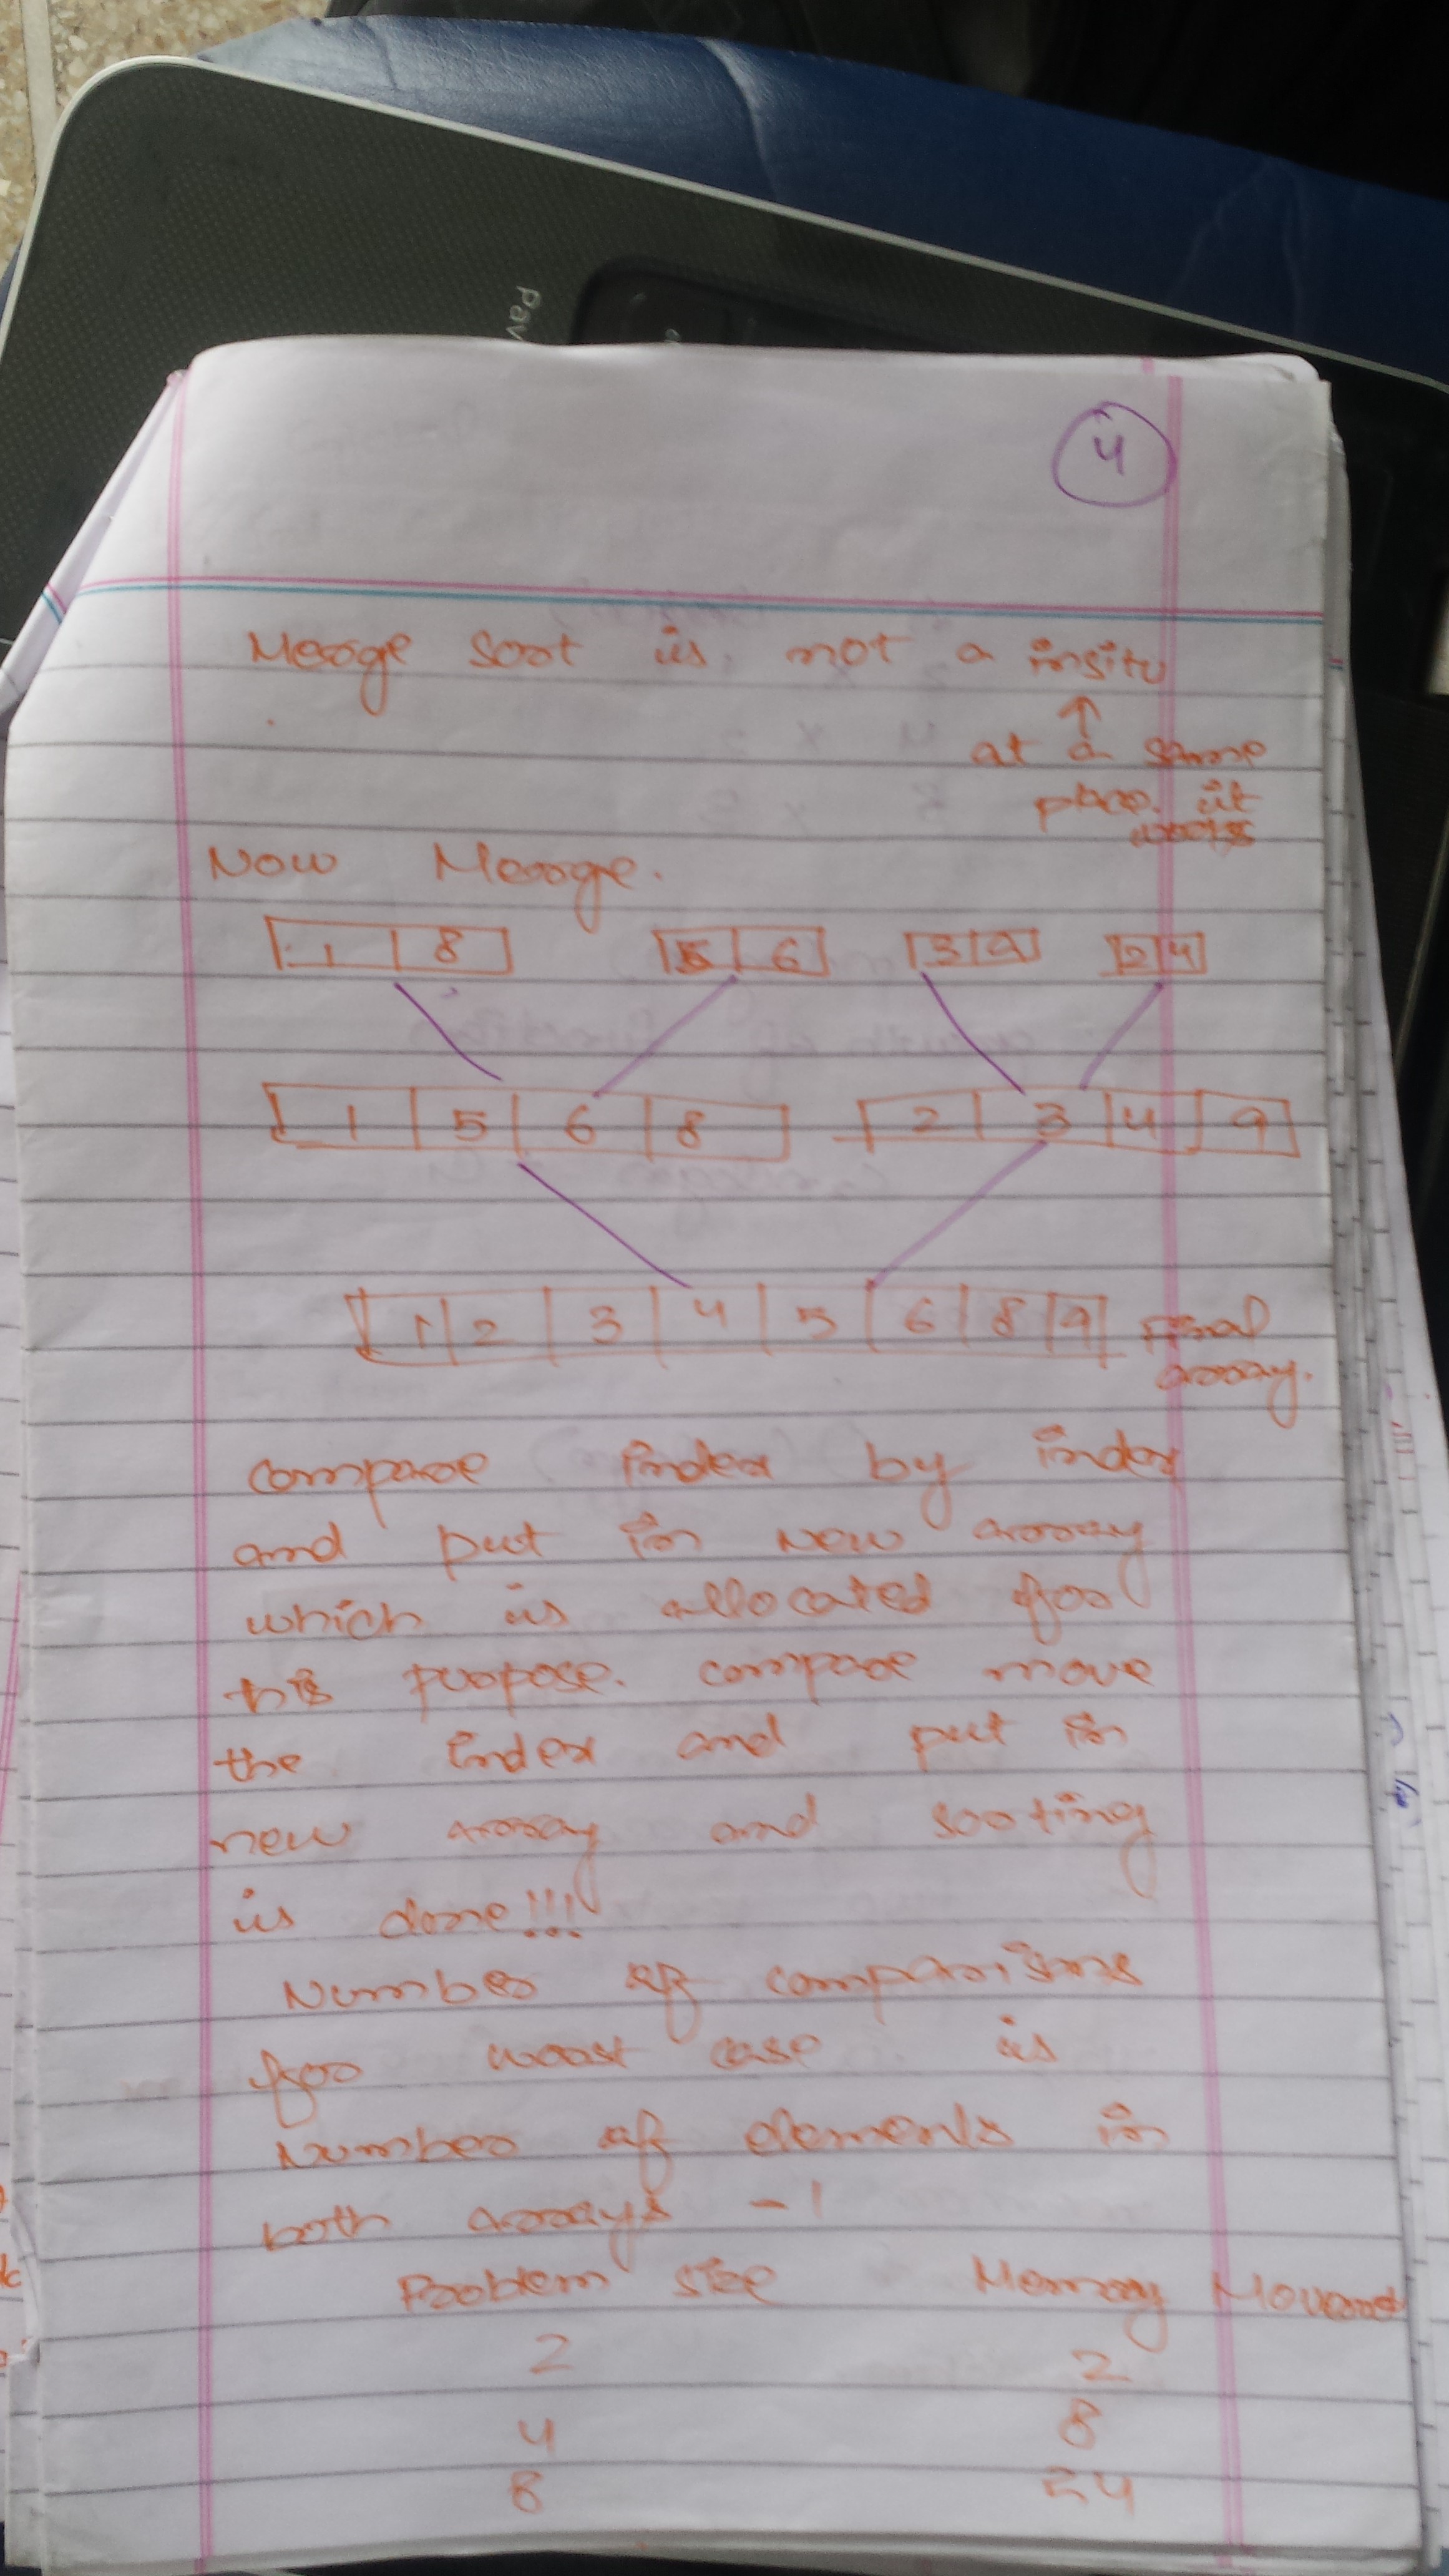 Pav
4
Merge sort is not a insitu
↑
at a same
place it
works
Now Merge.
1 8 5 6 3 9 2 4
1 5 6 8 2 3 4 9
1 2 3 4 5 6 8 9 final
array.
compare index by index
and put in new array
which is allocated for
this purpose. compare move
the index and put in
new array and sorting
is done!!!
Number of comparisons
for worst case is
Number of elements in
both arrays - 1
Problem size Memory Movement
2 2
4 8
8 24